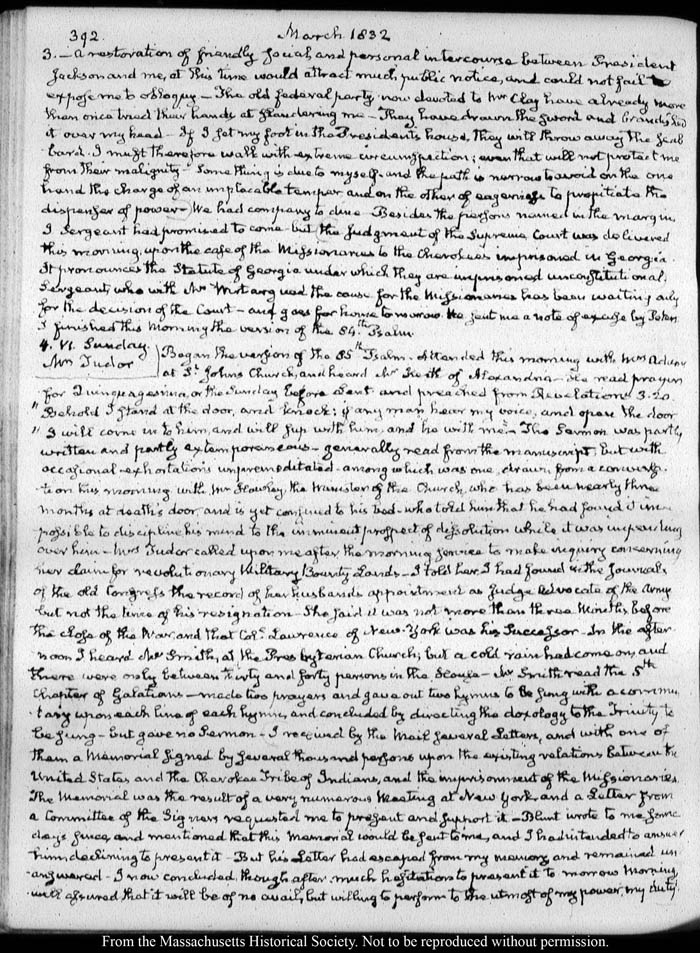 392.
March 1832
3. — a restoration of friendly social, and personal intercourse between President
Jackson and me, at this time would attract much public notice, and could not fail to
expose me to obloquy — The old federal party now devoted to Mr Clay have already more
than once tried their hands at slandering me — They have drawn the sword and brandished
it over my head — If I set my foot in the President's house, they will throw away the scab
bard. I must therefore walk with extreme circumspection; even that will not protect me
from their malignity — Something is due to myself, and the path is narrow to avoid on the one
hand the charge of an implacable temper, and on the other of eagerness to propitiate the
dispenser of power — We had company to dine — Besides the persons named in the margin
J Sergeant had promised to come but the Judgment of the Supreme Court was delivered
this morning, upon the case of the Missionaries to the Cherokees imprisoned in Georgia.
It pronounces the Statute of Georgia under which they are imprisoned unconstitutional.
Sergeant, who with Mr Wirt argued the cause for the Missionaries has been waiting only
for the decision of the Court — and goes for home tomorrow. He sent me a note of excuse by Peters
I finished this Morning the version of the 84th Psalm.
4. VI. Sunday.
Mrs Tudor
Began the version of the 85th Psalm. Attended this morning with Mrs Adams
at St. Johns Church, and heard Mr Keith of Alexandria — He read prayers
for Quinquagesima, or the Sunday before Lent and preached from Revelations 3.20.
"Behold I stand at the door, and knock; if any man hear my voice, and open the door
"I will come in to him, and will sup with him, and he with me — The Sermon was partly
written and partly extemporaneous — generally read from the manuscript, but with
occasional exhortations unpremeditated — among which was one, drawn from a conversa-
tion this morning with Mr Hawley, the Minister of the Church, who has been nearly three
months at death's door, and is yet confined to his bed — who told him that he had found it im-
possible to discipline his mind to the imminent prospect of dissolution while it was impending
over him — Mrs Tudor called upon me after the morning service to make inquiry concerning
her claim for revolutionary Military Bounty Lands — I told her I had found in the Journals
of the old Congress the record of her husbands appointment as Judge Advocate of the Army
but not the time of his resignation — She said it was not more than three Months before
the close of the War, and that Col. Lawrence of New-York was his Successor — In the after-
noon I heard Mr Smith, at the Presbyterian Church; but a cold rain had come on, and
there were only between thirty and forty persons in the house — Mr Smith read the 5th
Chapter of Galatians — made two prayers and gave out two hymns to be sung with a commen
tary upon each line of each hymn, and concluded by directing the doxology to the Trinity to
be sung — but gave no Sermon — I received by the Mail several Letters, and with one of
them a Memorial signed by several thousand persons upon the existing relations between the
United States and the Cherokee Tribe of Indians, and the imprisonment of the Missionaries.
The Memorial was the result of a very numerous Meeting at New York, and a Letter from
a Committee of the Signers requested me to present and support it — Blunt wrote to me some
days since, and mentioned that this Memorial would be sent to me, and I had intended to answer
him, declining to present it — But his Letter had escaped from my memory and remained un
answered — I now concluded, though after much hesitation to present it to morrow Morning
well assured that it will be of no avail, but willing to perform to the utmost of my power, my duty.
From the Massachusetts Historical Society. Not to be reproduced without permission.